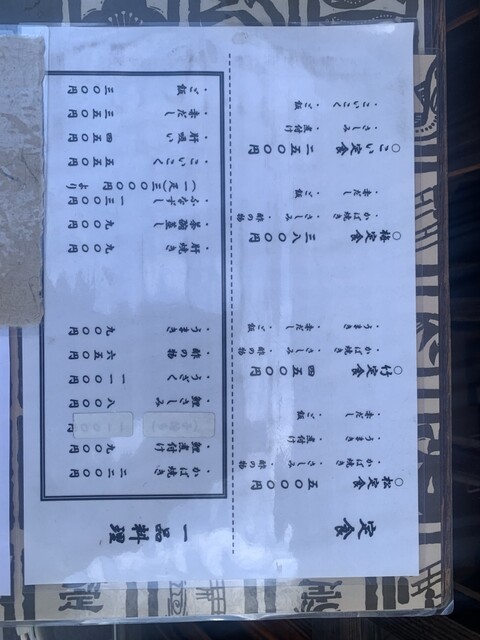 定食
○松定食 五〇〇〇円
・かば焼き ・さしみ ・酢の物
・うまき ・煮付け
・赤だし ・ご飯
○竹定食 四五〇〇円
・かば焼き ・さしみ ・酢の物
・うまき ・赤だし ・ご飯
○梅定食 三八〇〇円
・かば焼き ・さしみ ・酢の物
・赤だし ・ご飯
○こい定食 二五〇〇円
・さしみ ・煮付け
・こいこく ・ご飯
一品料理
・かば焼き 二二〇〇円
・鯉煮付け 九〇〇円
・鯉さしみ 八〇〇円
・うざく 一一〇〇円
・酢の物 六五〇円
・うまき 九〇〇円
・肝焼き 九〇〇円
・茶碗蒸し 九〇〇円
・ふなずし 一三〇〇円
(一尾)三〇〇〇円より
・こいこく 五五〇円
・肝吸い 四五〇円
・赤だし 三五〇円
・ご飯 三〇〇円